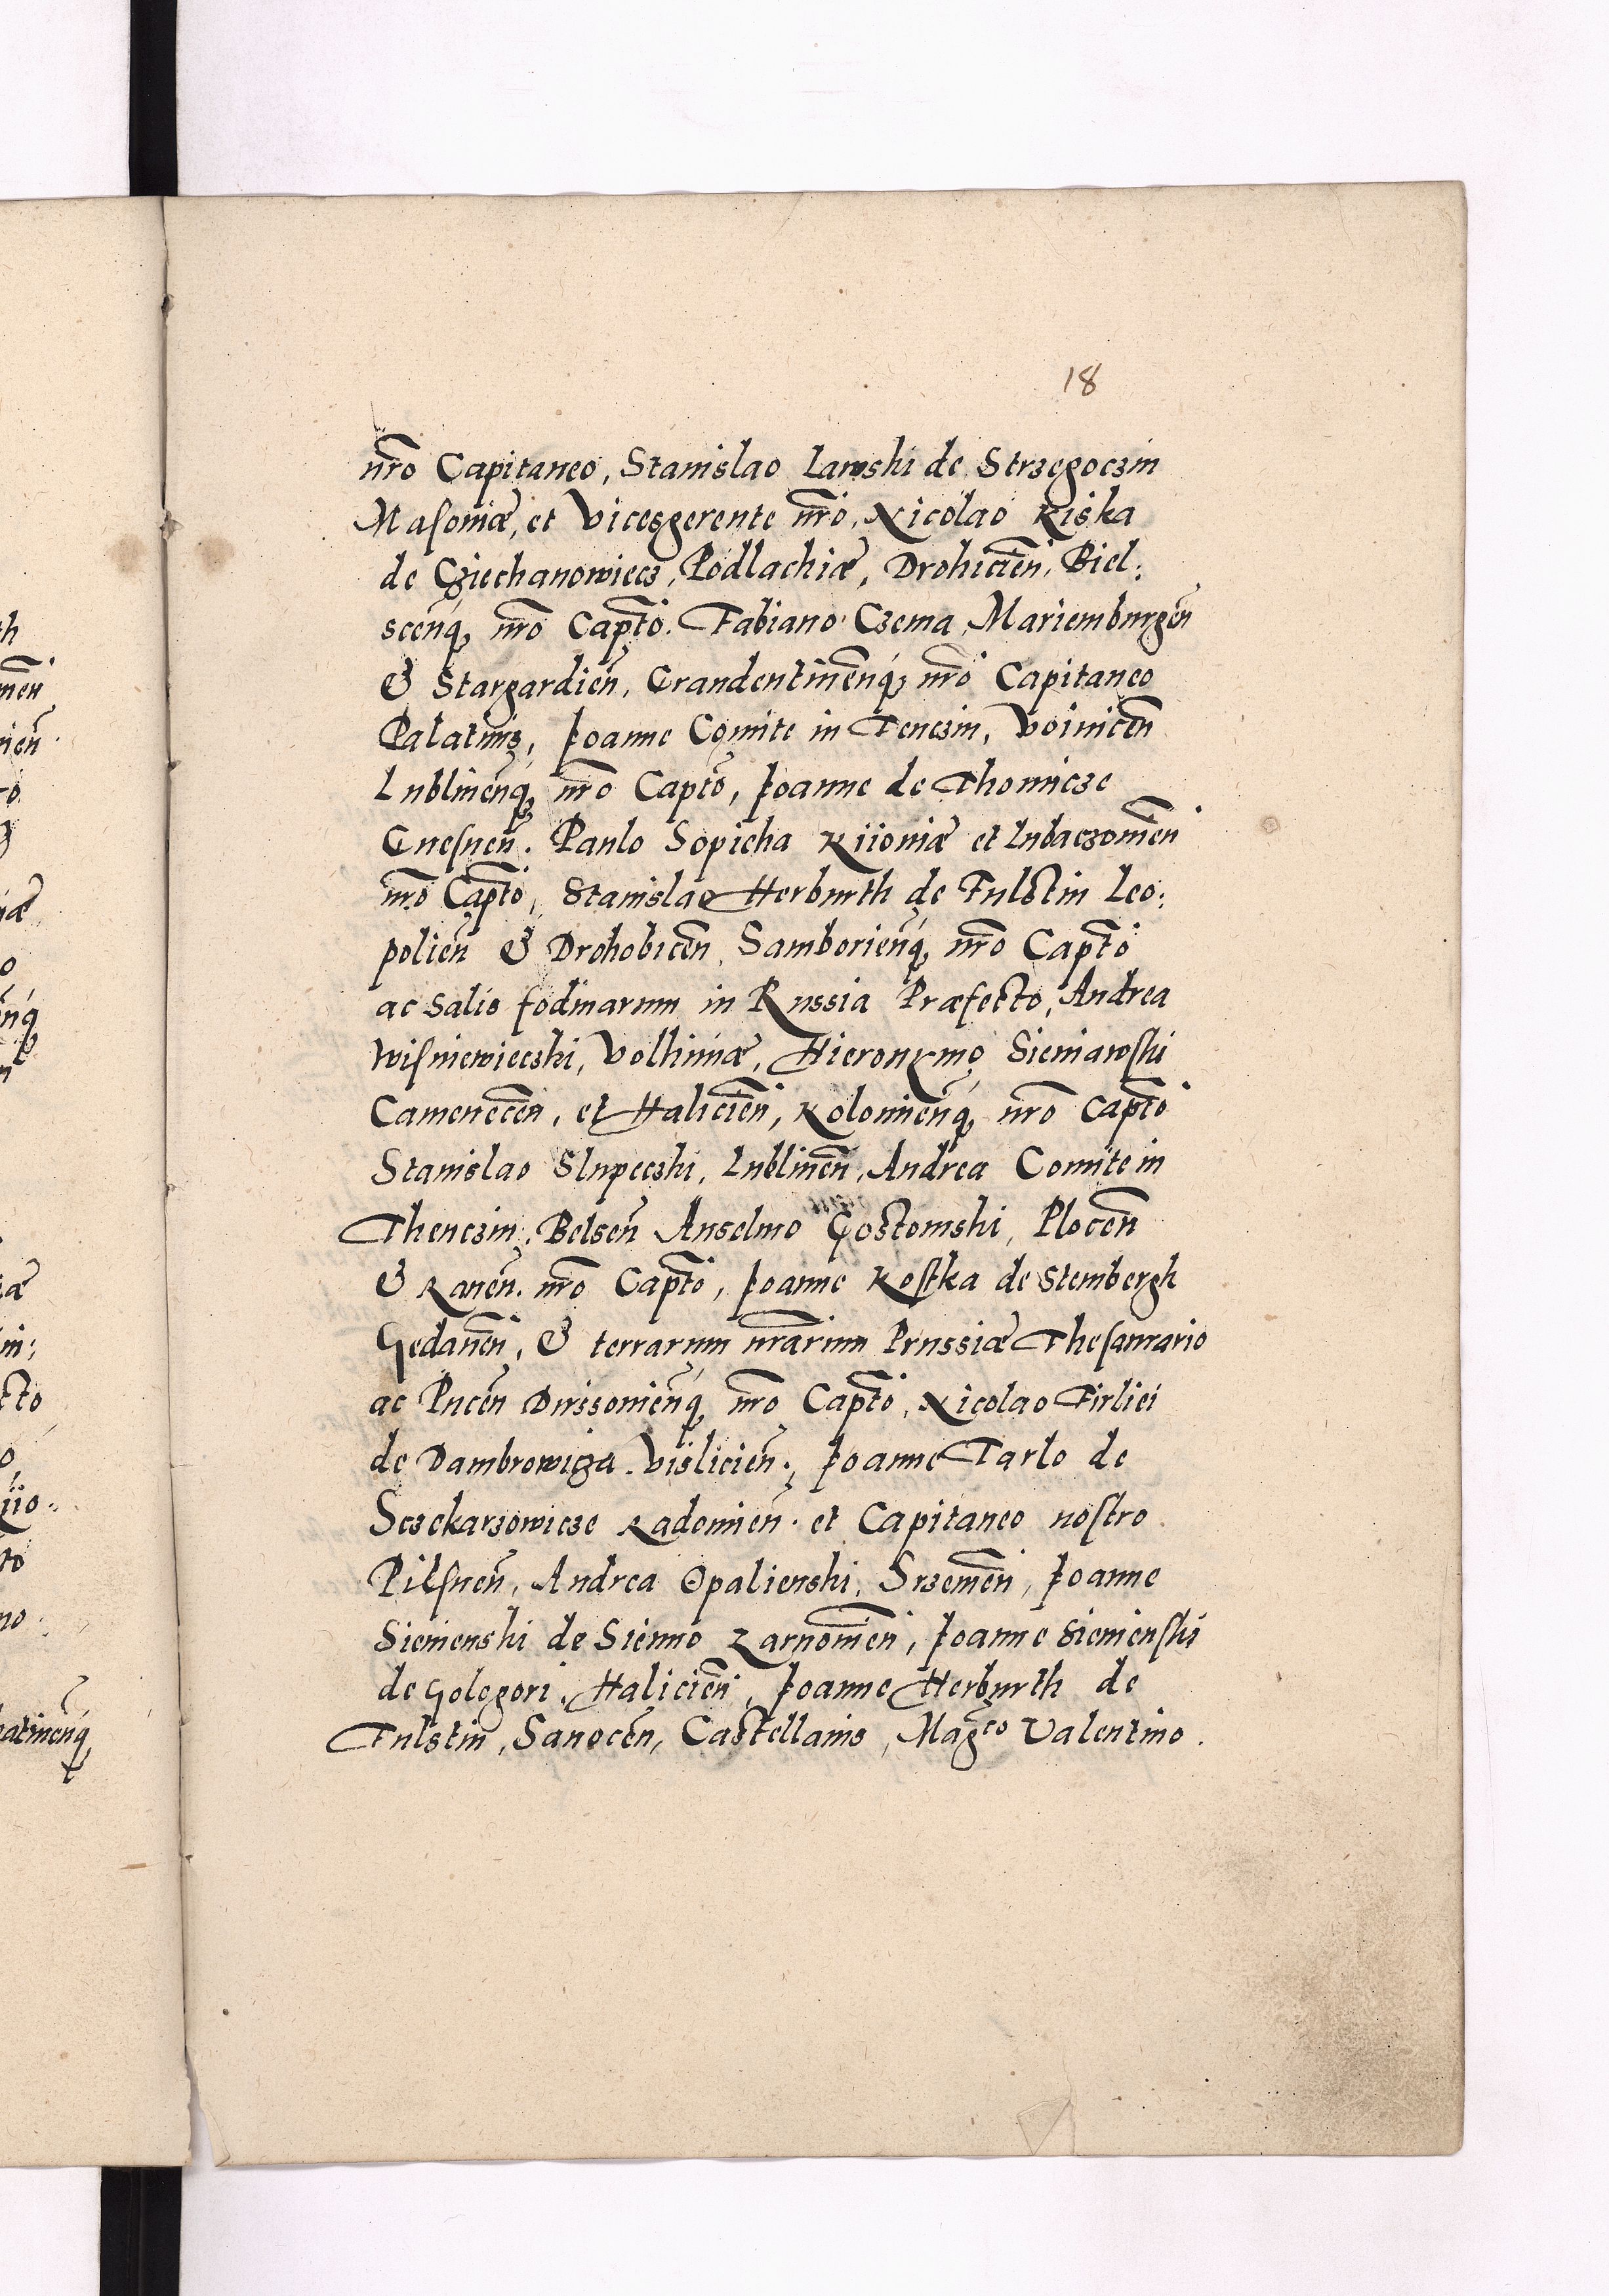 18
nr̃o Capitaneo, Stanislao Lawski de Strzegoczin
Masoniæ, et Vicesgerente nr̃o, Nicolao Kiska
de Cziechanowiecz, Podlachiæ, Drohicień, Biel:
sceńq, nr̃o Capt̃o. Fabiano Czema, Mariemburgeñ
& Stargardień, Graudentineñq, nr̃o Capitaneo
Palatinis, Joanne Comite in Tenczin, Voiniceñ
Lublineñq, nr̃o Capt̃o, Joanne de Thomicze
Gnesneñ. Paulo Sopieha Kiioniæ et Lubaczowieñ
nr̃o Capt̃o, Stanislao Herburth de Fulstin Leo:
polieñ & Drohobiceñ, Samborieñq, nr̃o Capt̃o
ac Salis fodinarum in Russia Præfecto, Andrea
Wisniewieczki, Volhiniæ, Hieronymo Sieniawski
Cameneceñ, et Halicieñ, Kolomieñq, nr̃o Capt̃o
Stanislao Slupeczki, Lublineñ, Andrea Comite in
Thenczin, Belseñ Anselmo Gostomski, Ploceñ
& Raueñ. nr̃o Capt̃o, Joanne Kostka de Stembergk
Gedaneñ, & terrarum nr̃arum Prussiæ Thesaurario
ac Puceñ Dirssouieñq, nr̃o Capt̃o, Nicolao Firliei
de Dambrowicza. Visliciеñ, Joanne Tarlo de
Sczekarzowicze Radomieñ. et Capitaneo nostro
Pilsneñ, Andrea Opalienski, Srzemeñ, Joanne
Sienienski de Sienno Zarnowieñ, Joanne Sienienski
de Gologori, Halicieñ, Joanne Herburth de
Fulstin, Sanoceñ, Castellanis, Mag̃co Valentino.